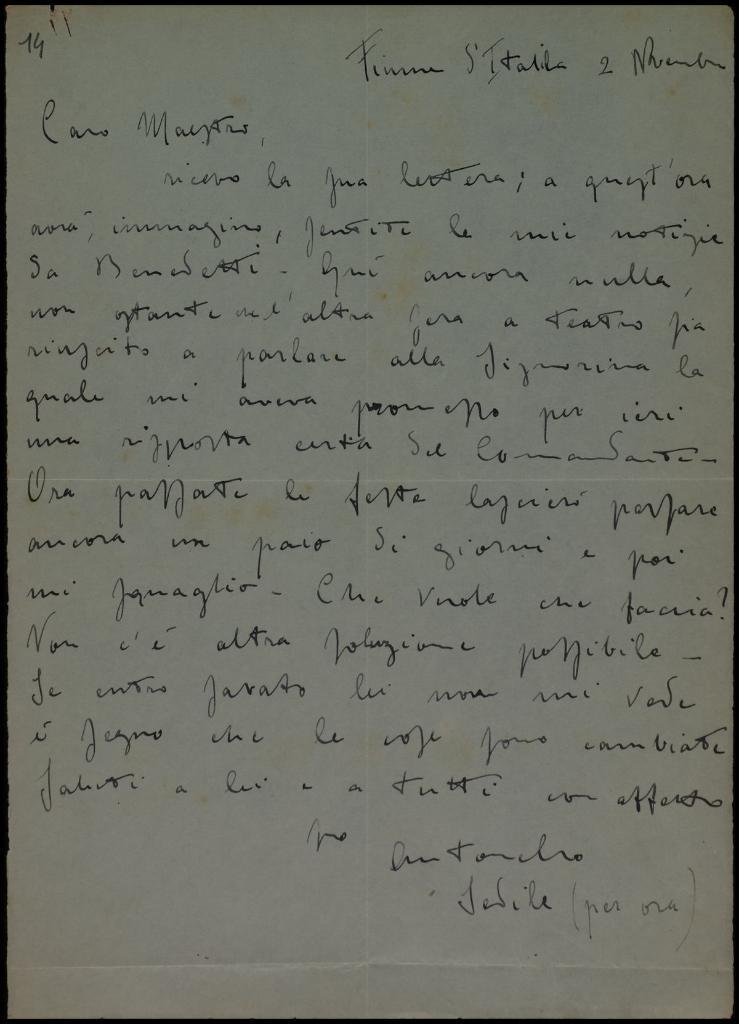 14
Fiume d'Italia 2 Novembre
Caro Maestro,
ricevo la sua lettera; a quest'ora
avrà, immagino, sentite le mie notizie
da Benedetti - Qui ancora nulla,
non ostante che l'altra sera a teatro sia
riuscito a parlare alla Signorina la
quale mi aveva promesso per ieri
una risposta certa del Comandante -
Ora passate le feste lascierò passare
ancora un paio di giorni e poi
mi squaglio - Che vuole che faccia?
Non c'è altra soluzione possibile -
Se entro sabato lei non mi vede
è segno che le cose sono cambiate
Saluti a lei e a tutti con affetto
suo
Sedile (per ora)